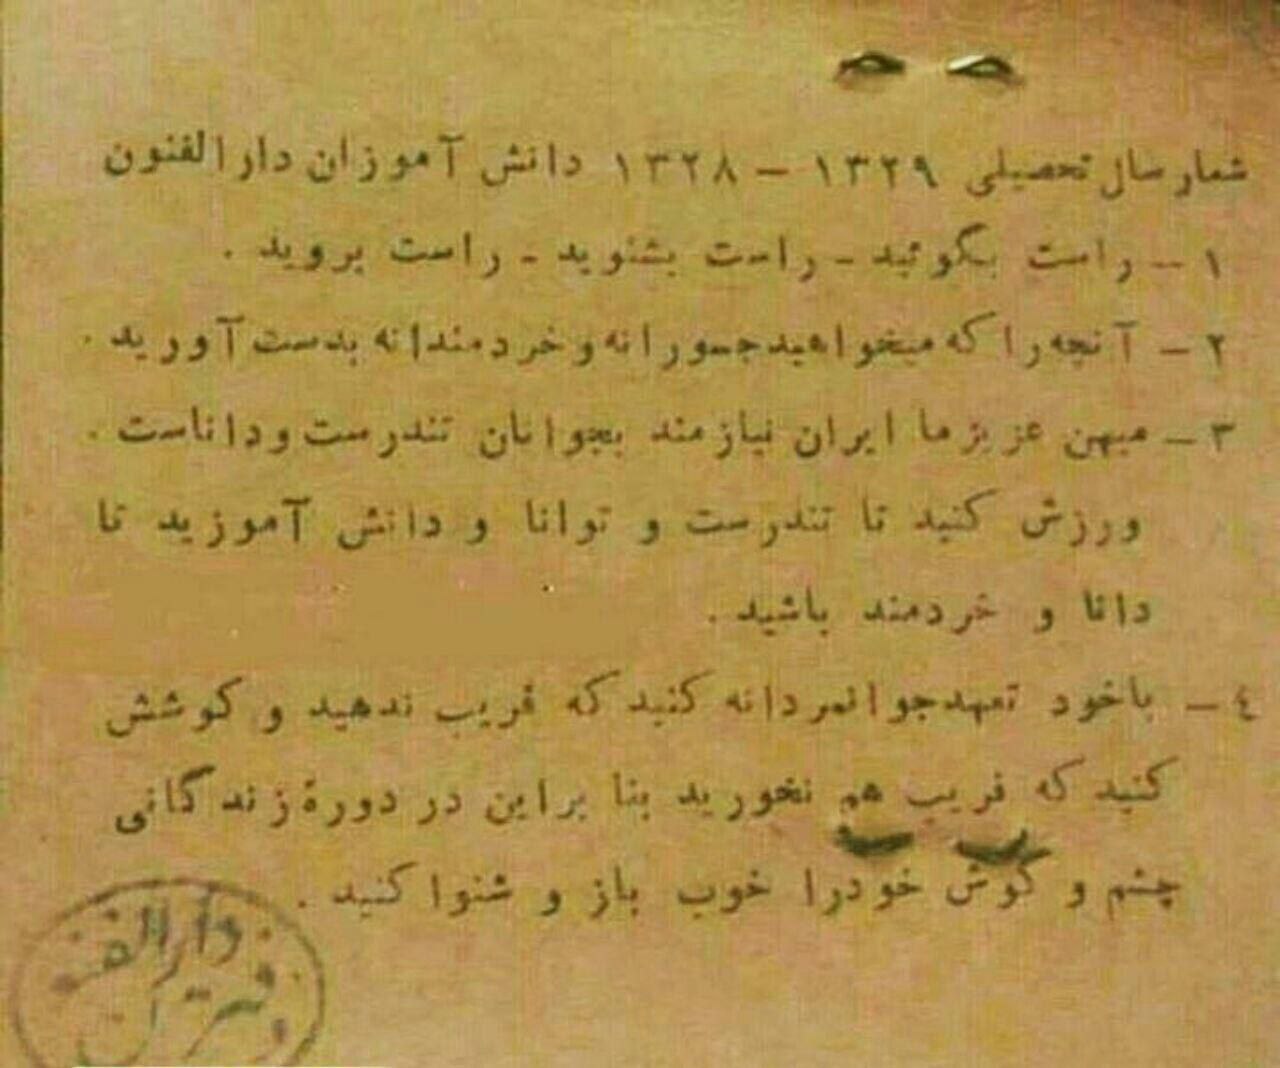 شعار سال تحصیلی ۱۳۲۹ – ۱۳۲۸ دانش آموزان دارالفنون
۱ – راست بگوئید – راست بشنوید – راست بروید .
۲ – آنچه را که میخواهید جسورانه و خردمندانه بدست آورید .
۳ – میهن عزیز ما ایران نیازمند بجوانان تندرست و داناست .
ورزش کنید تا تندرست و توانا و دانش آموزید تا
دانا و خردمند باشید .
٤ – باخود تعهد جوانمردانه کنید که فریب ندهید و کوشش
کنید که فریب هم نخورید بنا براین در دورهٔ زندگانی
چشم و گوش خودرا خوب باز و شنوا کنید .